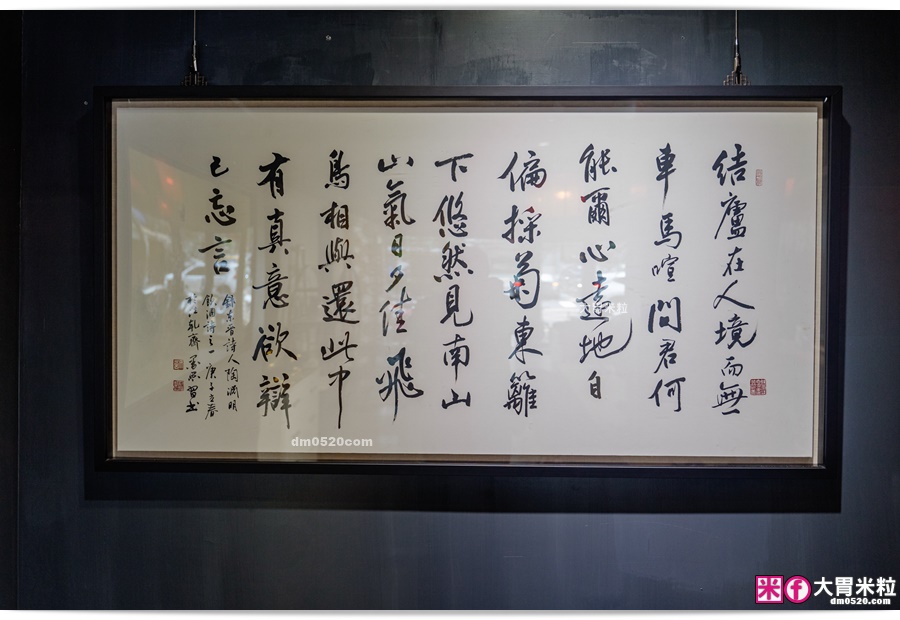 結廬在人境而無
車馬喧問君何
能爾心遠地自
偏採菊東籬
下悠然見南山
山氣日夕佳飛
鳥相與還此中
有真意欲辯
已忘言
錄東晉詩人陶淵明
飲酒詩之一庚子立春
dm0520com
大胃米粒
dm0520.com